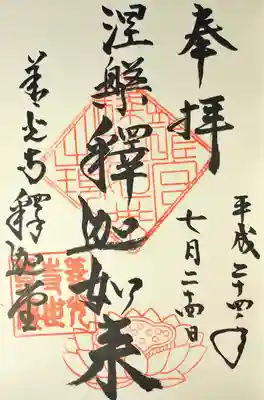 奉拝
平成二十四年
七月二十四日
涅槃釋迦如来
善光寺釋迦堂